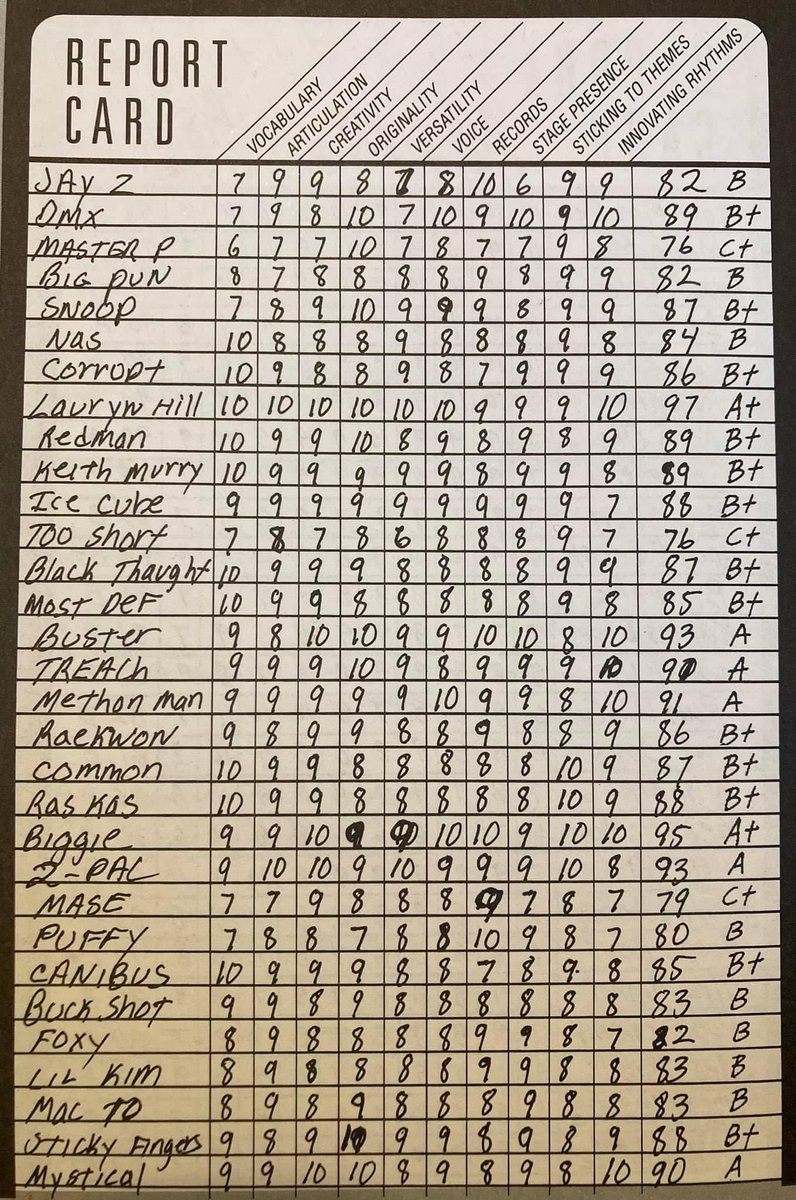 REPORT
CARD
VOCABULARY
ARTICULATION
CREATIVITY
ORIGINALITY
VERSATILITY
VOICE
RECORDS
STAGE PRESENCE
STICKING TO THEMES
INNOVATING RHYTHMS
JAY Z 7 9 9 8 7 8 10 6 9 9 82 B
DMX 7 9 8 10 7 10 9 10 9 10 89 B+
MASTER P 6 7 7 10 7 8 7 7 9 8 76 C+
BIG PUN 8 7 8 8 8 8 9 8 9 9 82 B
SNOOP 7 8 9 10 9 9 9 8 9 9 87 B+
Nas 10 8 8 8 9 8 8 8 9 8 84 B
Corropt 10 9 8 8 9 8 7 9 9 9 86 B+
Lauryn Hill 10 10 10 10 10 10 9 9 9 10 97 A+
Redman 10 9 9 10 8 9 8 9 8 9 89 B+
Keith Murry 10 9 9 9 9 9 8 9 9 8 89 B+
Ice Cube 9 9 9 9 9 9 9 9 9 7 88 B+
Too Short 7 8 7 8 6 8 8 8 9 7 76 C+
Black Thaught 10 9 9 9 8 8 8 8 9 9 87 B+
Most Def 10 9 9 8 8 8 8 8 9 8 85 B+
Buster 9 8 10 10 9 9 10 10 8 10 93 A
TREACh 9 9 9 10 9 8 9 9 9 10 91 A
Methon man 9 9 9 9 9 10 9 9 8 10 91 A
Raekwon 9 8 9 9 8 8 9 8 8 9 86 B+
Common 10 9 9 8 8 8 8 8 10 9 87 B+
Ras Kas 10 9 9 8 8 8 8 8 10 9 88 B+
Biggie 9 9 10 9 9 10 10 9 10 10 95 A+
2-PAC 9 10 10 9 10 9 9 9 10 8 93 A
MASE 7 7 9 8 8 8 9 7 8 7 79 C+
PUFFY 7 8 8 7 8 8 10 9 8 7 80 B
CANIBUS 10 9 9 9 8 8 7 8 9 8 85 B+
Buck Shot 9 9 8 9 8 8 8 8 8 8 83 B
FOXY 8 9 8 8 8 8 9 9 8 7 82 B
LIL KIM 8 9 8 8 8 8 9 9 8 8 83 B
MAC TO 8 9 8 9 8 8 8 9 8 8 83 B
Sticky Fingers 9 8 9 10 9 9 8 9 8 9 88 B+
Mystical 9 9 10 10 8 9 8 9 8 10 90 A